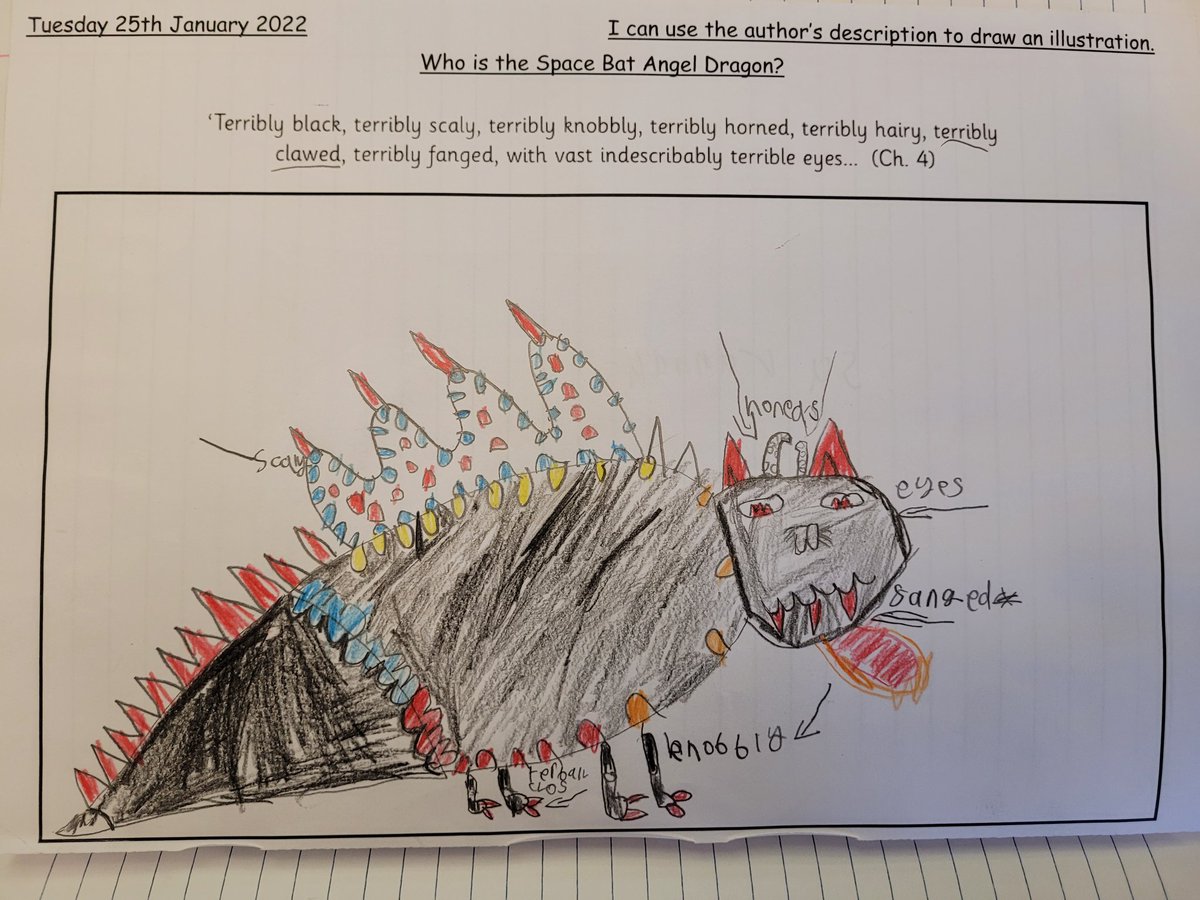 Tuesday 25th January 2022
I can use the author's description to draw an illustration.
Who is the Space Bat Angel Dragon?
'Terribly black, terribly scaly, terribly knobbly, terribly horned, terribly hairy, terribly
clawed, terribly fanged, with vast indescribably terrible eyes... (Ch. 4)
honeds
scaly
eyes
fanged
knobbly
clos